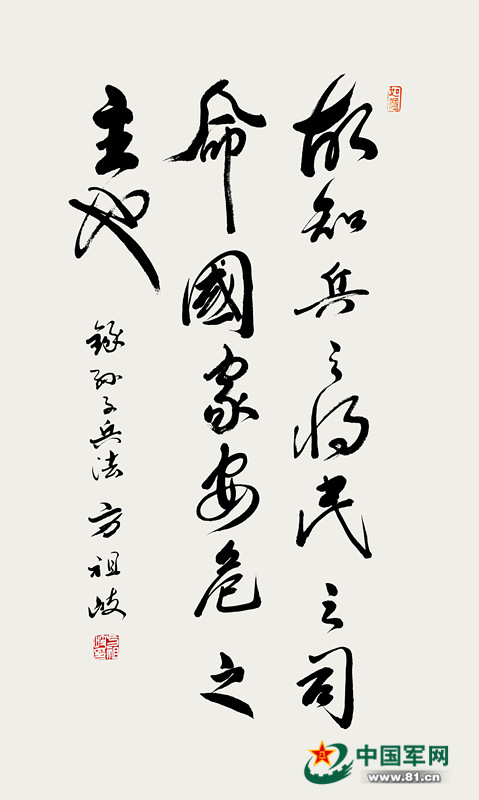 故知兵之将民之司
命國家安危之
主也
錄孫子兵法 方祖岐
中国军网
www.81.cn